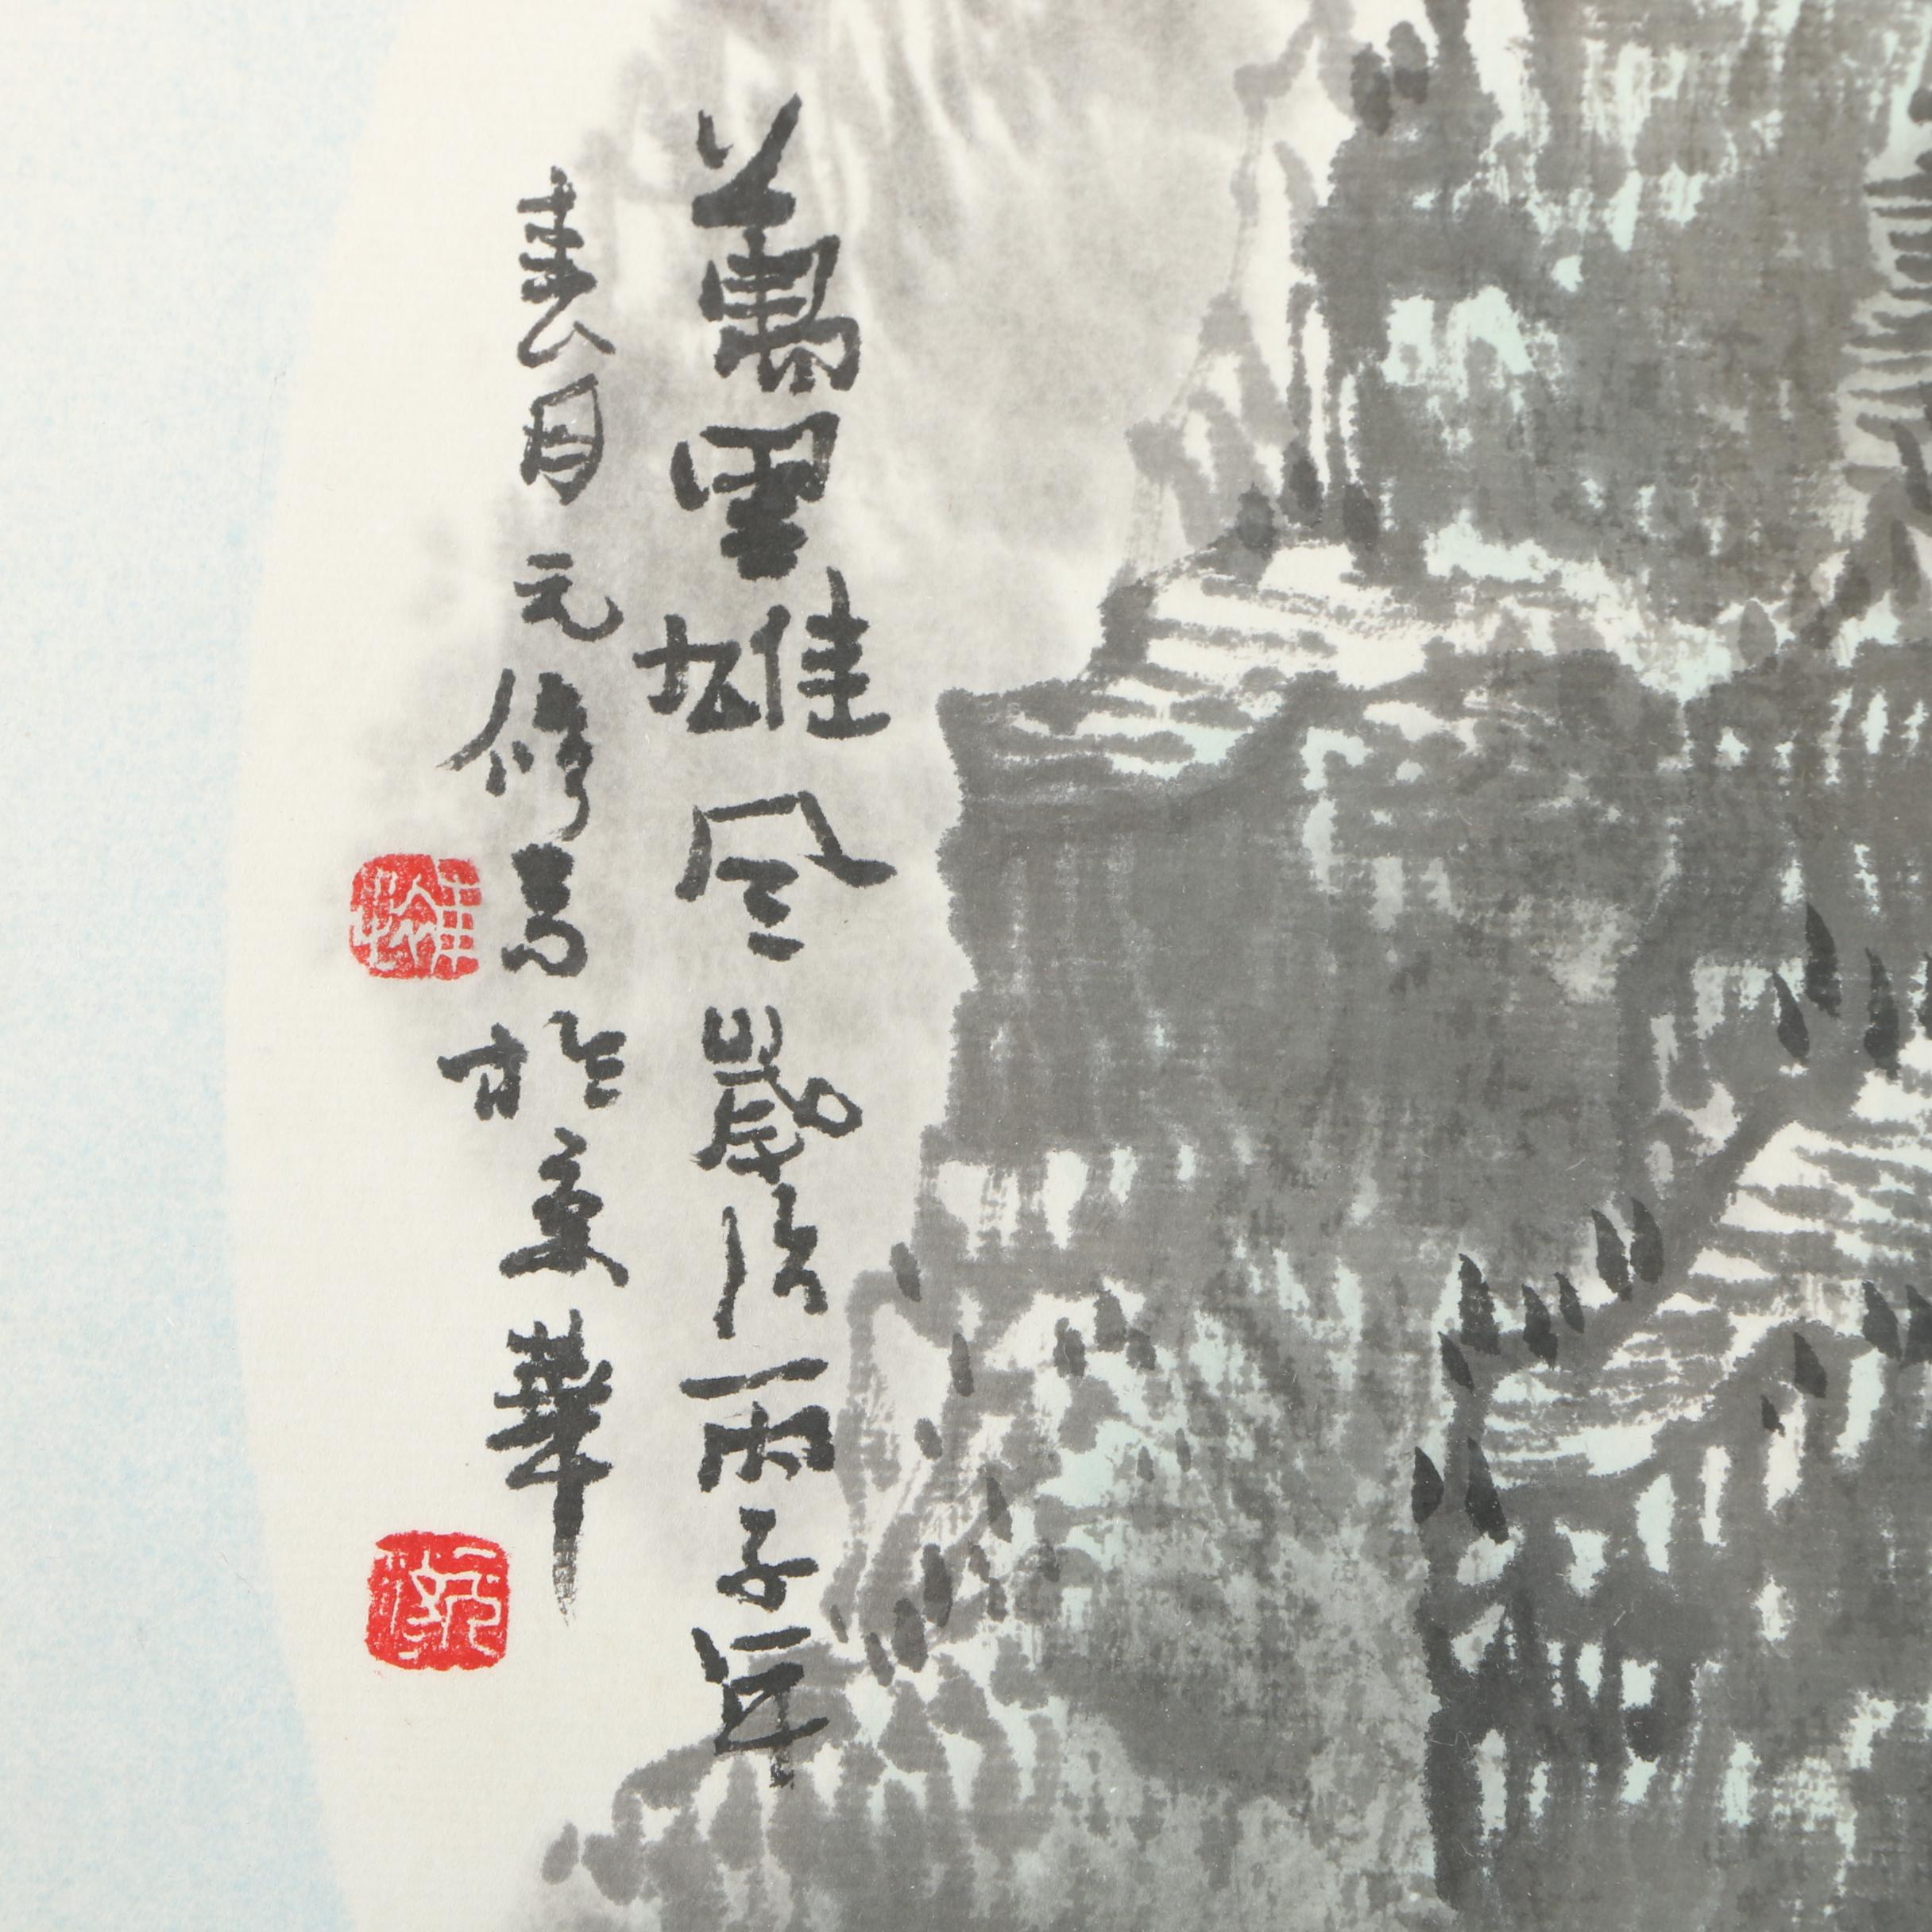 萬里雄风歲次丙子年
春月元修寫於京華